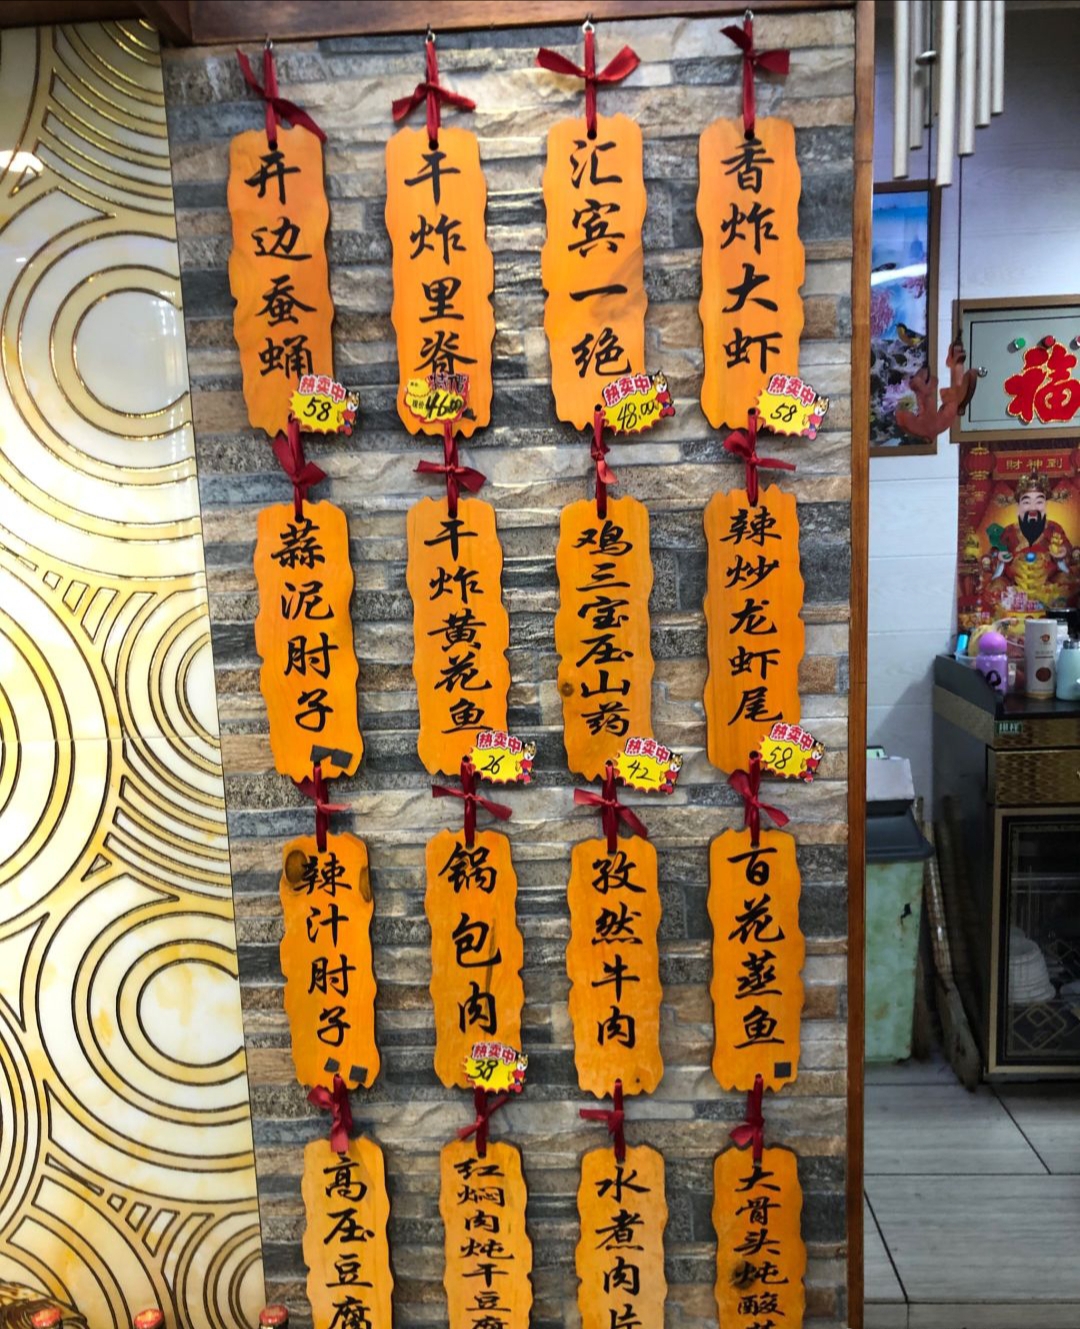 开边蚕蛹
热卖中
58
干炸里脊
46.00
汇宾一绝
热卖中
48.00
香炸大虾
热卖中
58
蒜泥肘子
干炸黄花鱼
热卖中
26
鸡三宝压山药
热卖中
42
辣炒龙虾尾
热卖中
58
辣汁肘子
锅包肉
热卖中
38
孜然牛肉
百花蒸鱼
高压豆腐
红焖肉炖干豆腐
水煮肉片
大骨头炖酸菜
福
財神到